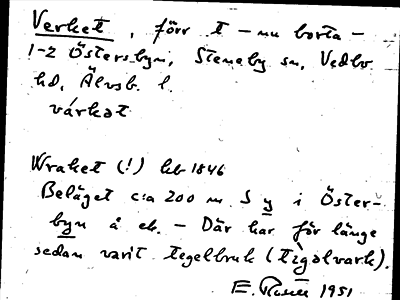 Verket, förr t - nu borta -
1-2 Östersbyn, Steneby sn, Vedbo
hd, Älvsb. l.
várkət
Wraket (!) hfb 1846
Beläget c:a 200 m S y i Öster-
byn å ek. - Där har för länge
sedan varit tegelbruk (tegəlvark).
E. Rosell 1951